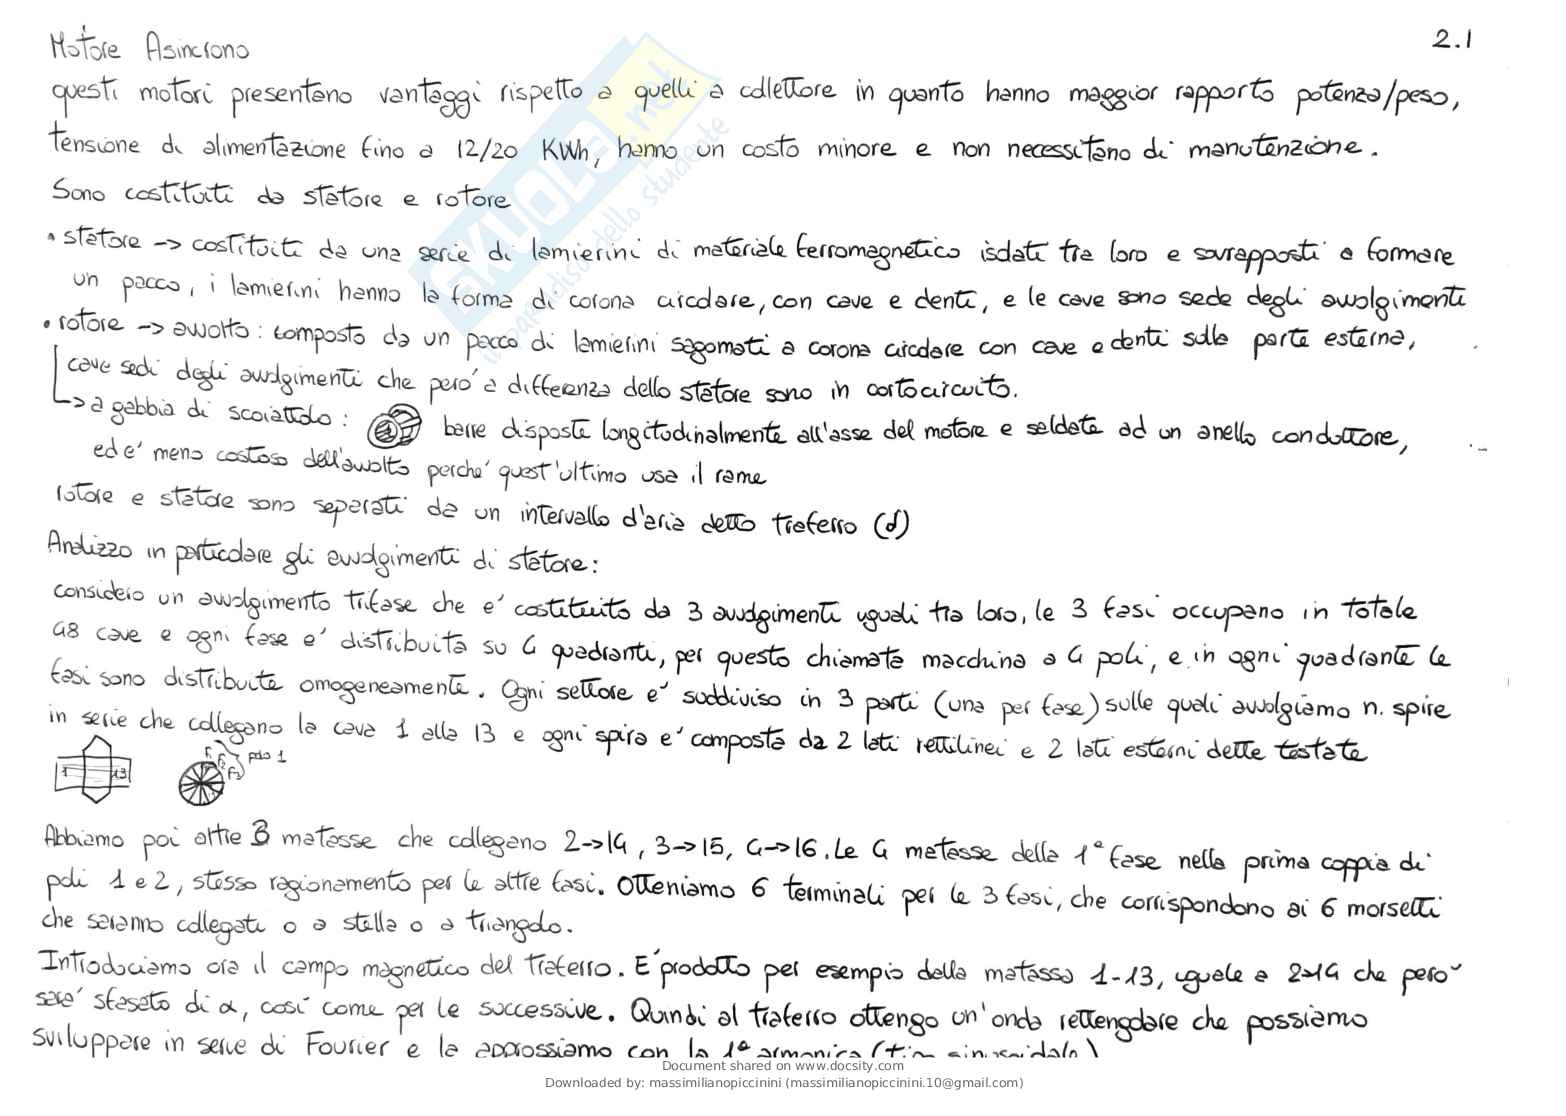 Motore Asincrono
2.1
questi motori presentano vantaggi rispetto a quelli a collettore in quanto hanno maggior rapporto potenza/peso,
tensione di alimentazione fino a 12/20 KWh, hanno un costo minore e non necessitano di manutenzione.
Sono costituiti da statore e rotore
• statore -> costituiti da una serie di lamierini di materiale ferromagnetico isolati tra loro e sovrapposti a formare
un pacco, i lamierini hanno la forma di corona circolare, con cave e denti, e le cave sono sede degli avvolgimenti
• rotore -> avvolto: composto da un pacco di lamierini sagomati a corona circolare con cave e denti sulla parte esterna,
cave sedi degli avvolgimenti che però a differenza dello statore sono in cortocircuito.
-> a gabbia di scoiattolo: barre disposte longitudinalmente all'asse del motore e saldate ad un anello conduttore,
ed è meno costoso dell'avvolto perché quest'ultimo usa il rame
rotore e statore sono separati da un intervallo d'aria detto traferro (d)
Analizzo in particolare gli avvolgimenti di statore:
considero un avvolgimento trifase che e' costituito da 3 avvolgimenti uguali tra loro, le 3 fasi occupano in totale
48 cave e ogni fase e' distribuita su 4 quadranti, per questo chiamata macchina a 4 poli, e in ogni quadrante le
fasi sono distribuite omogeneamente. Ogni settore e' suddiviso in 3 parti (una per fase) sulle quali avvolgiamo n. spire
in serie che collegano la cava 1 alla 13 e ogni spira e' composta da 2 lati rettilinei e 2 lati esterni dette testate
1 13
F1 F2 F3 polo 1
Abbiamo poi altre 3 matasse che collegano 2->14, 3->15, 4->16. Le 4 matasse della 1ª fase nella prima coppia di
poli 1 e 2, stesso ragionamento per le altre fasi. Otteniamo 6 terminali per le 3 fasi, che corrispondono ai 6 morsetti
che saranno collegati o a stella o a triangolo.
Introduciamo ora il campo magnetico del traferro. E' prodotto per esempio della matassa 1-13, uguale a 2->14 che pero'
sara' sfasato di α, cosi' come per le successive. Quindi al traferro ottengo un'onda rettangolare che possiamo
sviluppare in serie di Fourier e la approssiamo con la 1ª armonica (tipo sinusoidale)
SKUOLA.net
il paradiso dello studente
Document shared on www.docsity.com
Downloaded by: massimilianopiccinini (massimilianopiccinini.10@gmail.com)